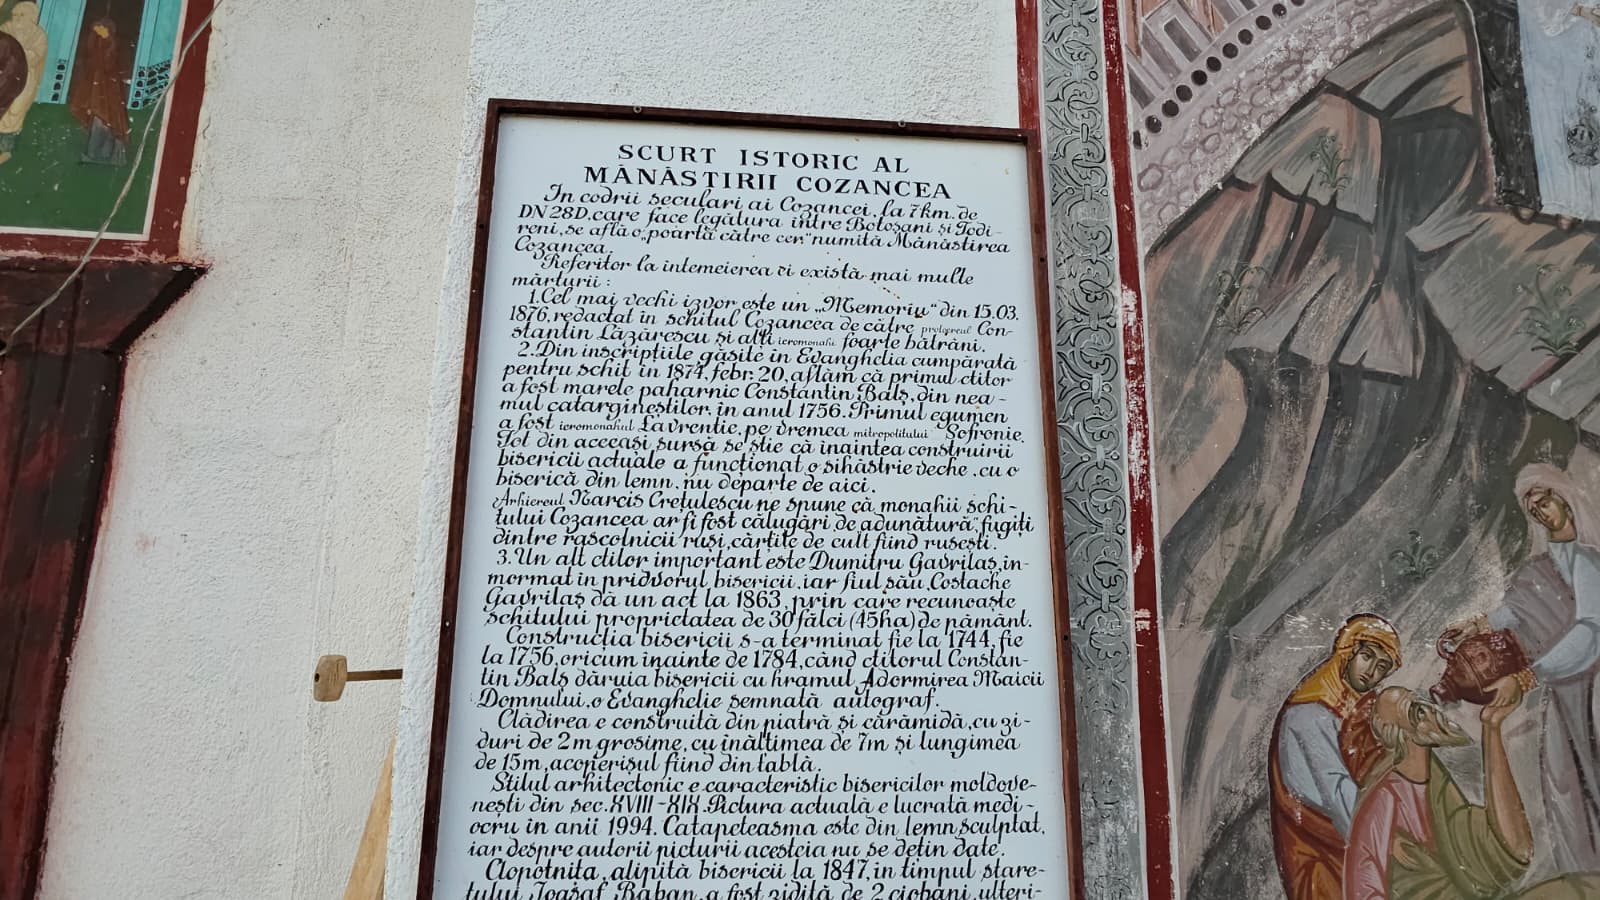 SCURT ISTORIC AL
MÂNĂSTIRII COZANCEA
In codrii seculari ai Cozancei, la 7km. de
DN28D, care face legătura între Botoșani și Todi-
reni, se află o „poartă către cer" numită Mânăstirea
Cozancea.
Referitor la întemeierea ei există mai multe
mărturii :
1. Cel mai vechi izvor este un „Memoriu" din 15.03.
1876, redactat în schitul Cozancea de către protoereul Con-
stantin Lăzărescu și alți ieromonahi foarte bătrâni.
2. Din inscripțiile găsite în Evanghelia cumpărată
pentru schit în 1874, febr. 20, aflăm că primul ctitor
a fost marele paharnic Constantin Balș, din nea-
mul catargineștilor, în anul 1756. Primul egumen
a fost ieromonahul Lavrentie, pe vremea mitropolitului Sofronie.
Tot din aceeași sursă se știe că înaintea construirii
bisericii actuale a funcționat o sihăstrie veche, cu o
biserică din lemn, nu departe de aici.
Arhiereul Narcis Crețulescu ne spune că monahii schi-
tului Cozancea ar fi fost călugări „de adunătură", fugiți
dintre rascolnicii ruși, cărțile de cult fiind rusești.
3. Un alt ctitor important este Dumitru Gavrilaș, în-
mormat în pridvorul bisericii, iar fiul său, Costache
Gavrilaș dă un act la 1863, prin care recunoaște
schitului proprietatea de 30 fălci (45ha) de pământ.
Construcția bisericii s-a terminat fie la 1744, fie
la 1756, oricum înainte de 1784, când ctitorul Constan-
tin Balș dăruia bisericii cu hramul Adormirea Maicii
Domnului, o Evanghelie semnată autograf.
Clădirea e construită din piatră și cărămidă, cu zi-
duri de 2m grosime, cu înălțimea de 7m și lungimea
de 15m, acoperișul fiind din tablă.
Stilul arhitectonic e caracteristic bisericilor moldove-
nești din sec. XVIII-XIX. Pictura actuală e lucrată medi-
ocru în anii 1994. Catapeteasma este din lemn sculptat,
iar despre autorii picturii acesteia nu se dețin date.
Clopotnița, alipită bisericii la 1847, în timpul stare-
tului Ioasaf Baban, a fost zidită de 2 ciobani, ulteri-